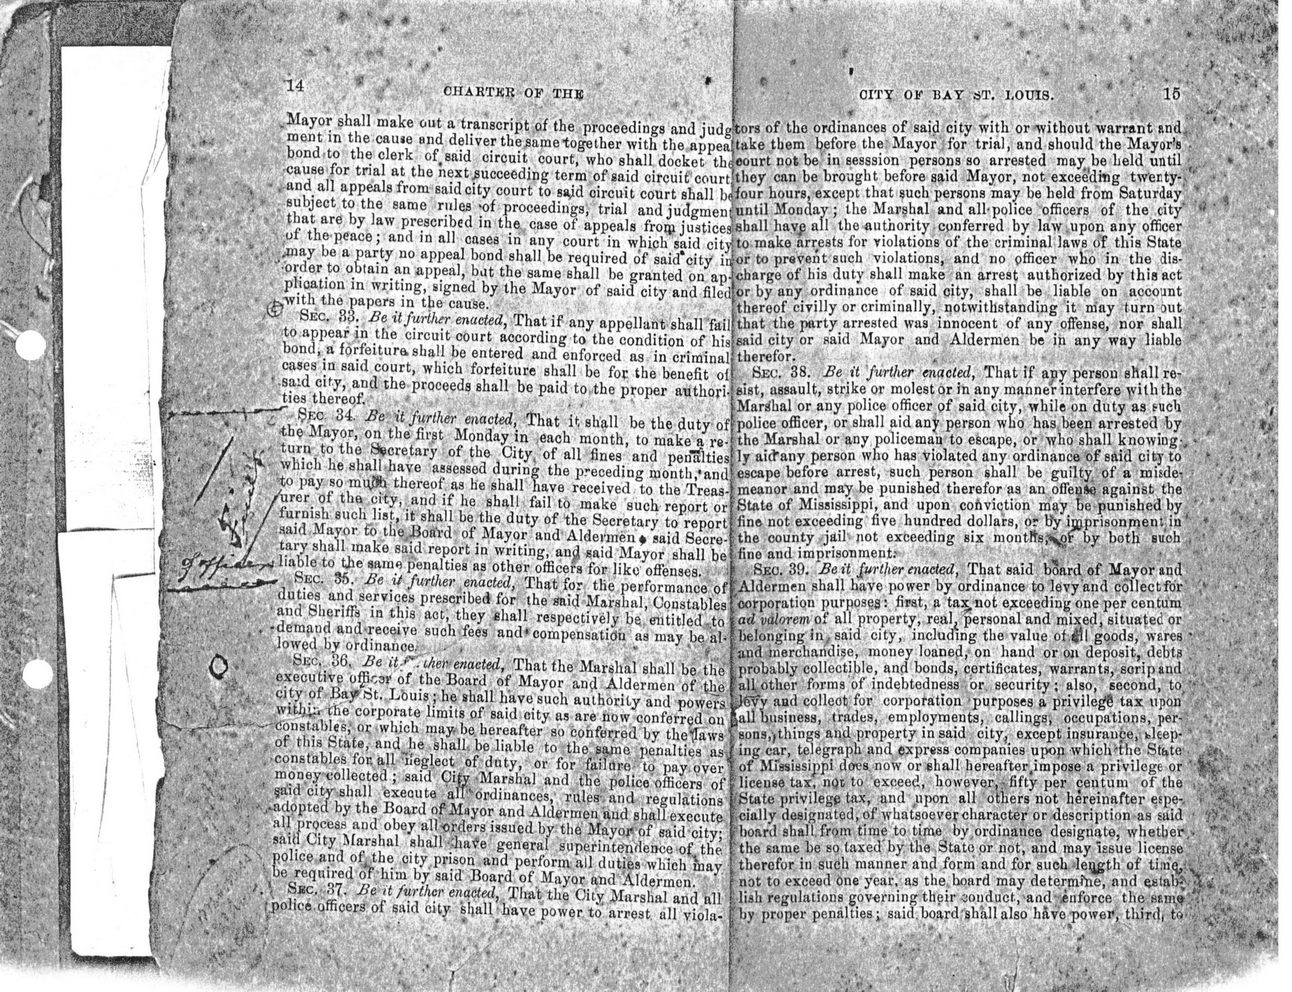 14
CHARTER OF THE
Mayor shall make out a transcript of the proceedings and judg
ment in the cause and deliver the same together with the appea
bond to the clerk of said circuit court, who shall docket the
cause for trial at the next succeeding term of said circuit court
and all appeals from said city court to said circuit court shall be
subject to the same rules of proceedings, trial and judgment
that are by law prescribed in the case of appeals from justices
of the peace; and in all cases in any court in which said city
may be a party no appeal bond shall be required of said city in
order to obtain an appeal, but the same shall be granted on ap-
plication in writing, signed by the Mayor of said city and filed
with the papers in the cause.
SEC. 33. Be it further enacted, That if any appellant shall fail
to appear in the circuit court according to the condition of his
bond, a forfeiture shall be entered and enforced as in criminal
cases in said court, which forfeiture shall be for the benefit of
said city, and the proceeds shall be paid to the proper authori-
ties thereof.
SEC. 34. Be it further enacted, That it shall be the duty of
the Mayor, on the first Monday in each month, to make a re-
turn to the Secretary of the City, of all fines and penalties
which he shall have assessed during the preceding month, and
to pay so much thereof as he shall have received to the Treas-
urer of the city, and if he shall fail to make such report or
furnish such list, it shall be the duty of the Secretary to report
said Mayor to the Board of Mayor and Aldermen, said Secre-
tary shall make said report in writing, and said Mayor shall be
liable to the same penalties as other officers for like offenses.
SEC. 35. Be it further enacted, That for the performance of
duties and services prescribed for the said Marshal, Constables
and Sheriffs in this act, they shall respectively be entitled to
demand and receive such fees and compensation as may be al-
lowed by ordinance.
SEC. 36. Be it ther enacted, That the Marshal shall be the
executive officer of the Board of Mayor and Aldermen of the
city of Bay St. Louis; he shall have such authority and powers
within the corporate limits of said city as are now conferred on
constables, or which may be hereafter so conferred by the laws
of this State, and he shall be liable to the same penalties as
constables for all neglect of duty, or for failure to pay over
money collected; said City Marshal and the police officers of
said city shall execute all ordinances, rules and regulations
adopted by the Board of Mayor and Aldermen and shall execute
all process and obey all orders issued by the Mayor of said city;
said City Marshal shall have general superintendence of the
police and of the city prison and perform all duties which may
be required of him by said Board of Mayor and Aldermen.
SEC. 37. Be it further enacted, That the City Marshal and all
police officers of said city shall have power to arrest all viola-
of office
CITY OF BAY ST. LOUIS.
15
tors of the ordinances of said city with or without warrant and
take them before the Mayor for trial, and should the Mayor's
court not be in sesssion persons so arrested may be held until
they can be brought before said Mayor, not exceeding twenty-
four hours, except that such persons may be held from Saturday
until Monday; the Marshal and all police officers of the city
shall have all the authority conferred by law upon any officer
to make arrests for violations of the criminal laws of this State
or to prevent such violations, and no officer who in the dis-
charge of his duty shall make an arrest authorized by this act
or by any ordinance of said city, shall be liable on account
thereof civilly or criminally, notwithstanding it may turn out
that the party arrested was innocent of any offense, nor shall
said city or said Mayor and Aldermen be in any way liable
therefor.
SEC. 38. Be it further enacted, That if any person shall re-
sist, assault, strike or molest or in any manner interfere with the
Marshal or any police officer of said city, while on duty as such
police officer, or shall aid any person who has been arrested by
the Marshal or any policeman to escape, or who shall knowing-
ly aid any person who has violated any ordinance of said city to
escape before arrest, such person shall be guilty of a misde-
meanor and may be punished therefor as an offense against the
State of Mississippi, and upon conviction may be punished by
fine not exceeding five hundred dollars, or by imprisonment in
the county jail not exceeding six months, or by both such
fine and imprisonment.
SEC. 39. Be it further enacted, That said board of Mayor and
Aldermen shall have power by ordinance to levy and collect for
corporation purposes: first, a tax not exceeding one per centum
ad valorem of all property, real, personal and mixed, situated or
belonging in said city, including the value of all goods, wares
and merchandise, money loaned, on hand or on deposit, debts
probably collectible, and bonds, certificates, warrants, scrip and
all other forms of indebtedness or security; also, second, to
levy and collect for corporation purposes a privilege tax upon
all business, trades, employments, callings, occupations, per-
sons, things and property in said city, except insurance, sleep-
ing car, telegraph and express companies upon which the State
of Mississippi does now or shall hereafter impose a privilege or
license tax, not to exceed, however, fifty per centum of the
State privilege tax, and upon all others not hereinafter espe-
cially designated, of whatsoever character or description as said
board shall from time to time by ordinance designate, whether
the same be so taxed by the State or not, and may issue license
therefor in such manner and form and for such length of time,
not to exceed one year, as the board may determine, and estab-
lish regulations governing their conduct, and enforce the same
by proper penalties; said board shall also have power, third, to